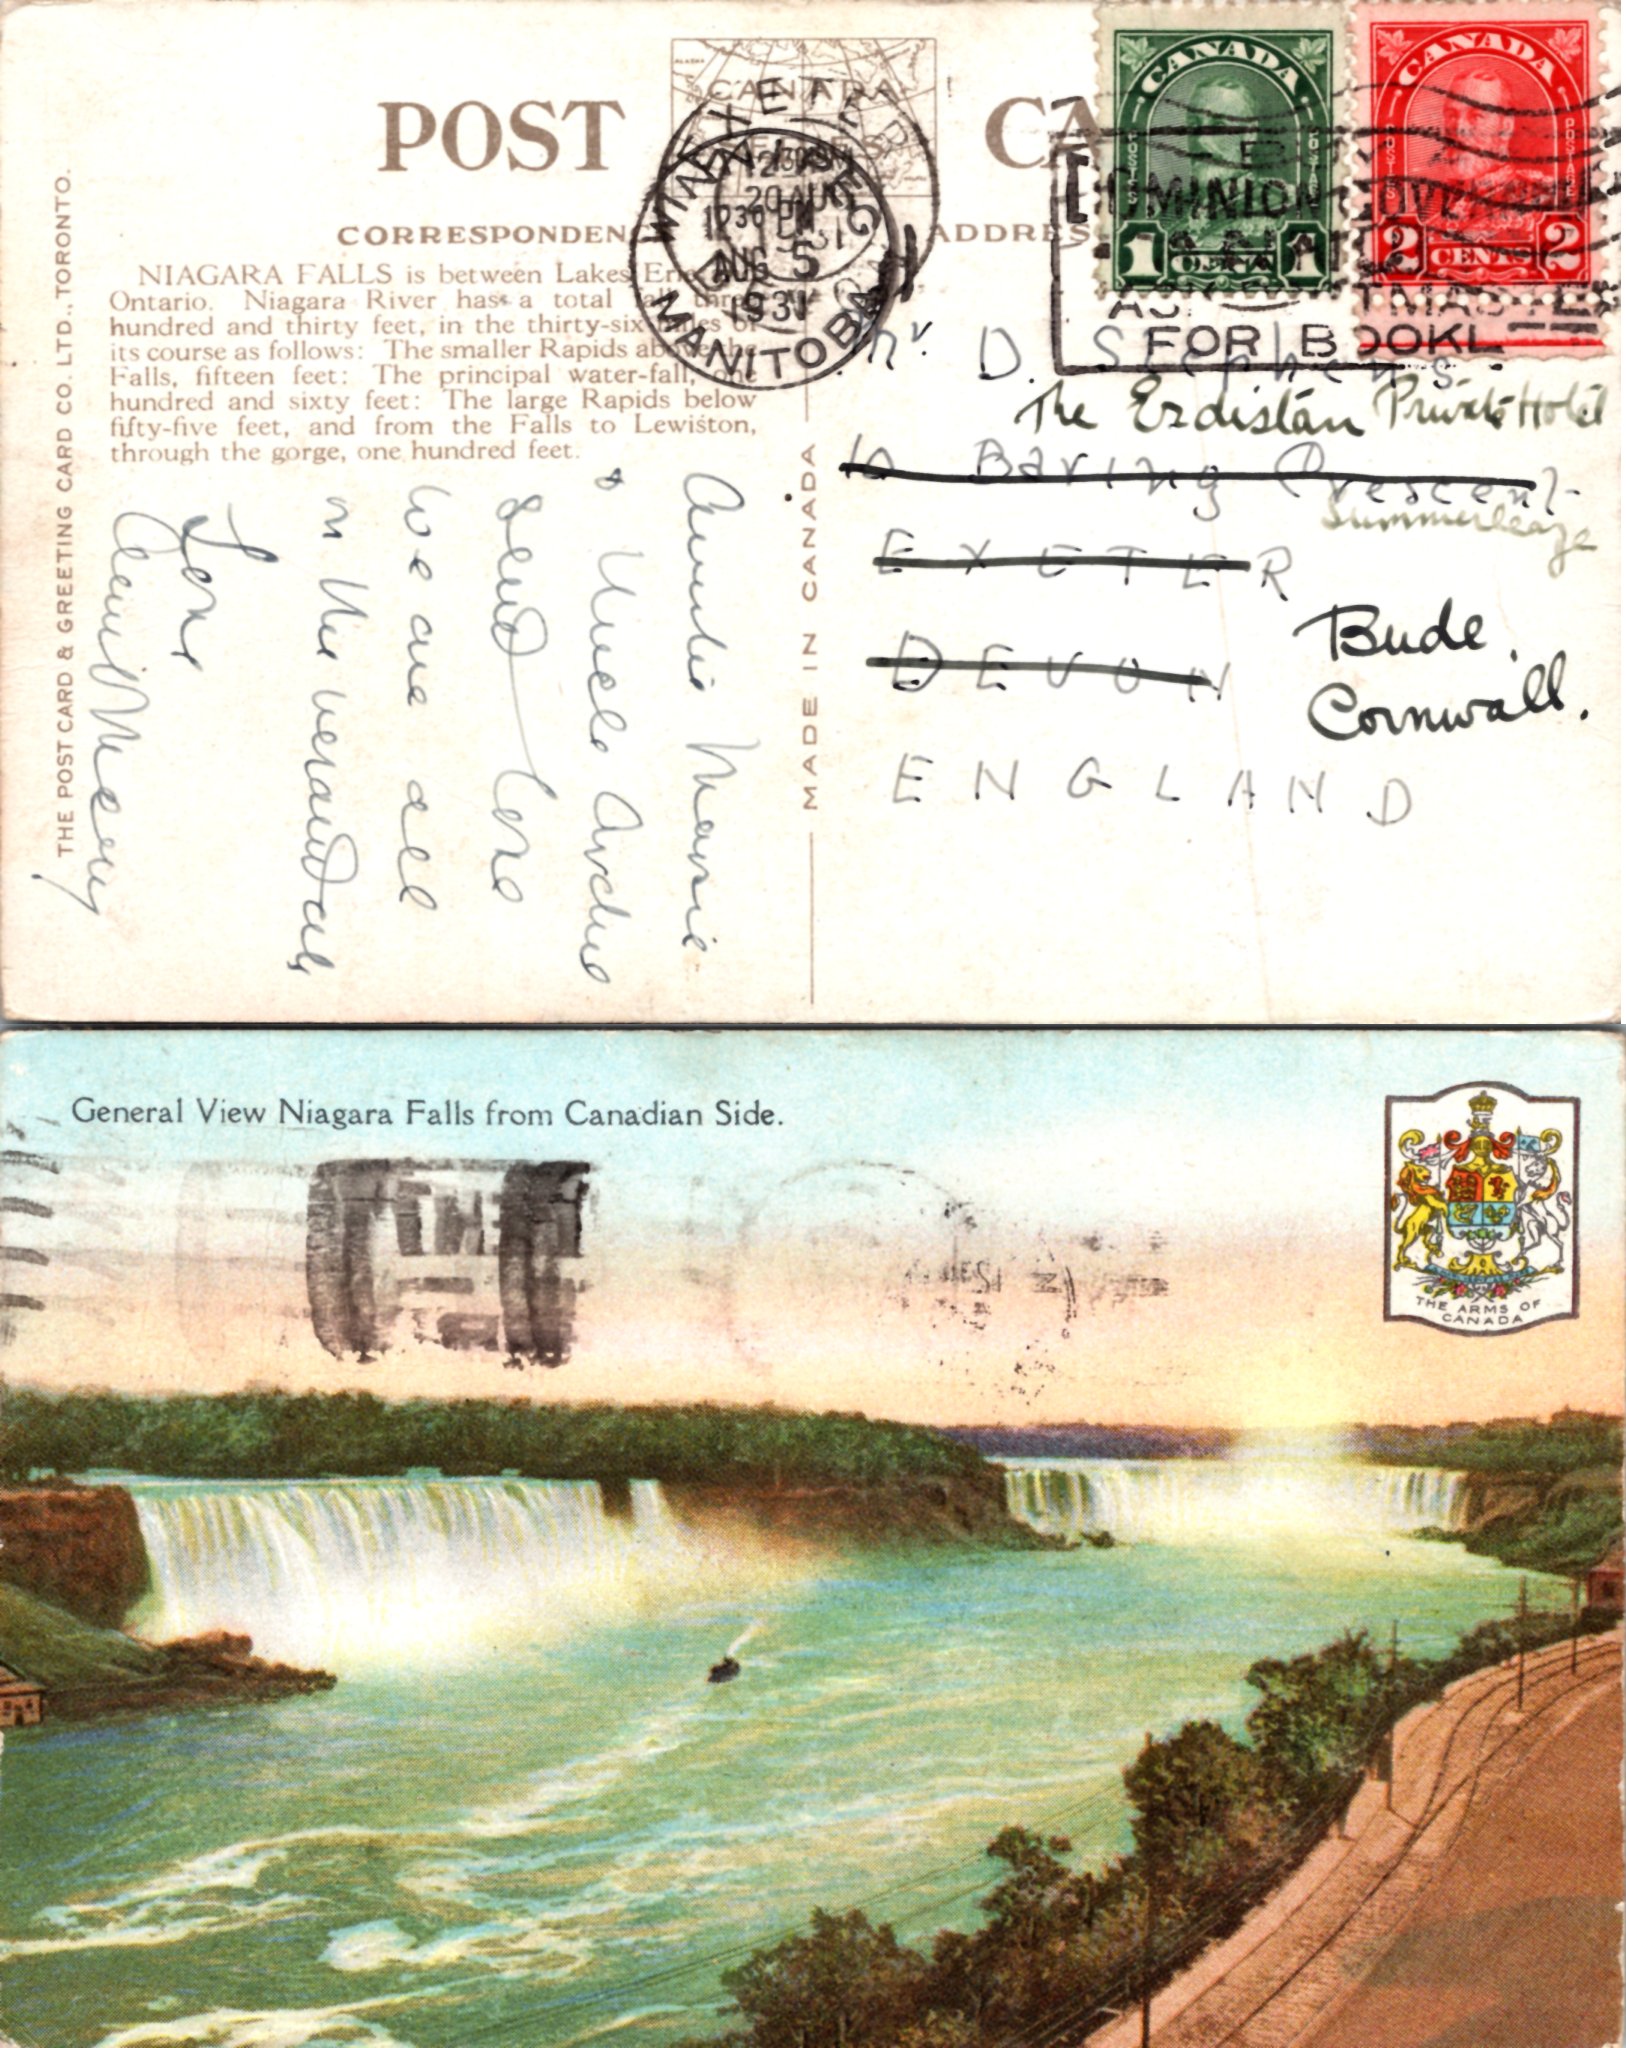 POST CA
CANADA
CORRESPONDEN ADDRES
WINNIPEG
MANITOBA
12 30 PM
AUG 5
1931
EXETER
20 AUG
CANADA
POSTES POSTAGE
1 CENT 1
CANADA
POSTES POSTAGE
2 CENTS 2
DOMINION GOVERNMENT
FOR BOOKL
NIAGARA FALLS is between Lakes Erie
Ontario. Niagara River has a total fall three
hundred and thirty feet, in the thirty-six miles of
its course as follows: The smaller Rapids above the
Falls, fifteen feet: The principal water-fall, one
hundred and sixty feet: The large Rapids below
fifty-five feet, and from the Falls to Lewiston,
through the gorge, one hundred feet.
THE POST CARD & GREETING CARD CO. LTD., TORONTO.
MADE IN CANADA
Auntie Marie
& Uncle Archie
send love
We are all
on the verandah
Love
Mr. D. Stephens
The Erdistan Private Hotel
Baring Crescent
Summerleaze
EXETER
DEVON
Bude,
Cornwall.
ENGLAND
General View Niagara Falls from Canadian Side.
THE ARMS OF
CANADA